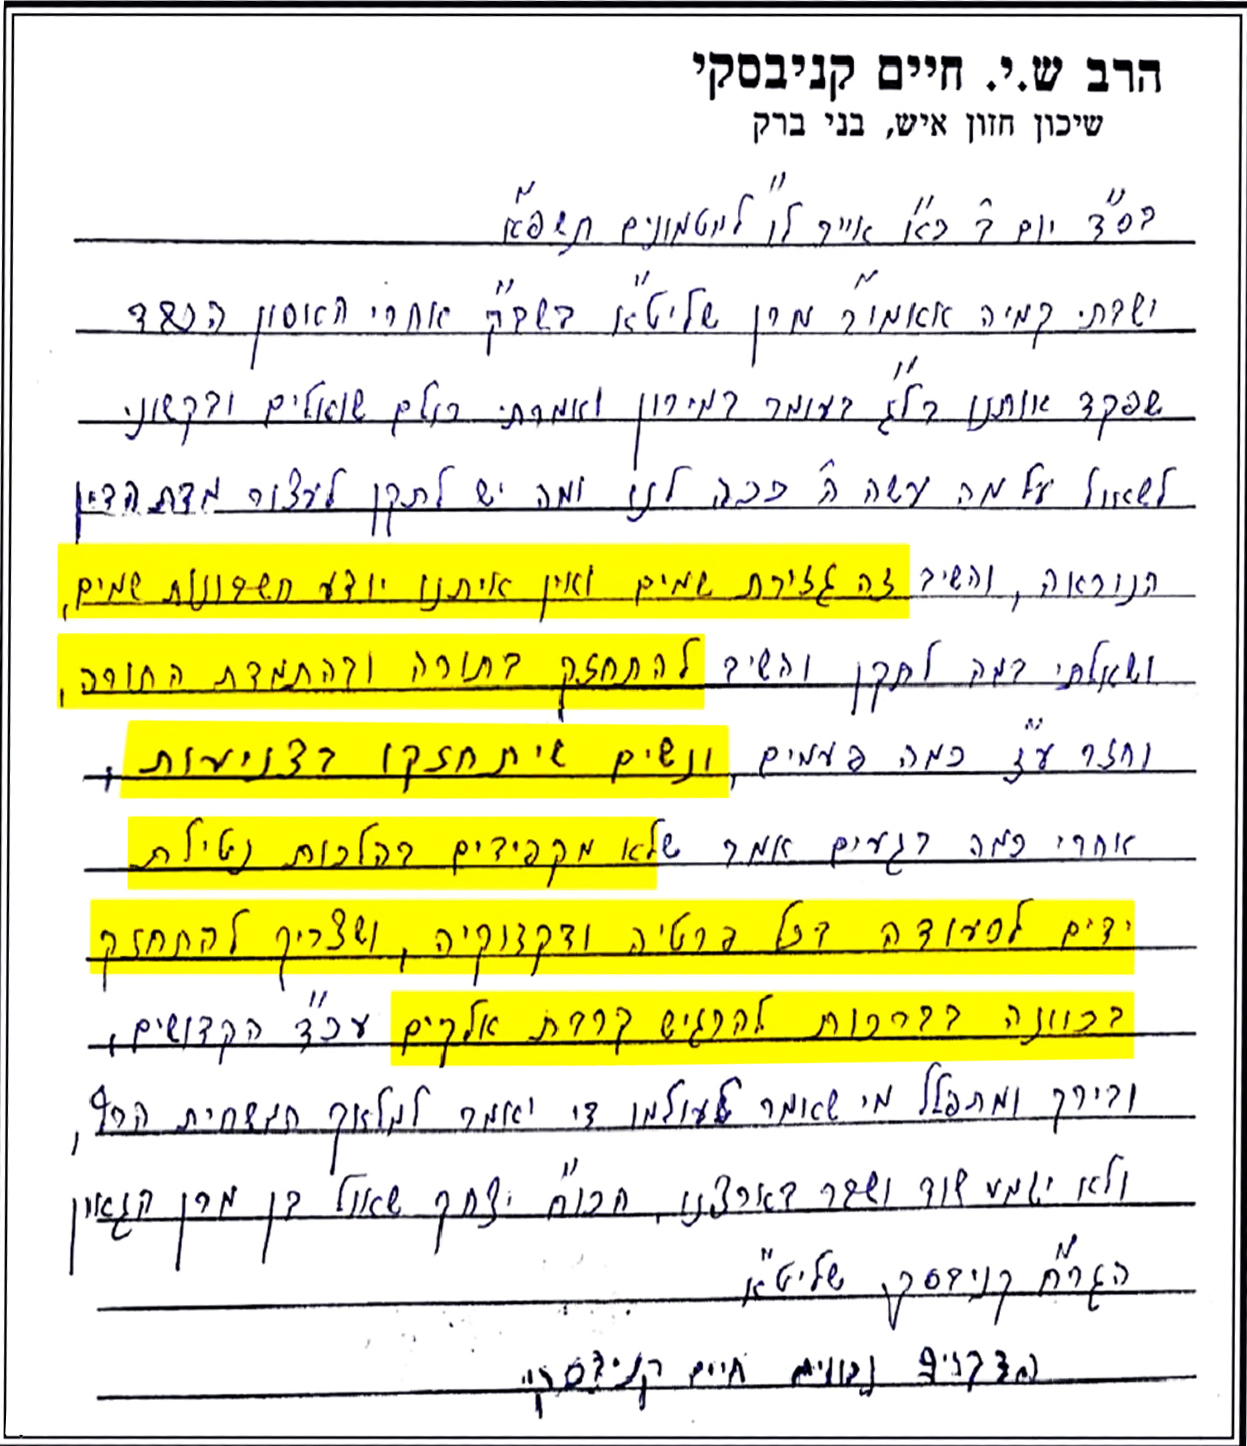 הרב ש.י. חיים קניבסקי
שיכון חזון איש, בני ברק
בס"ד יום ב' כ"א אייר ל"ו למטמונים תשפ"א
ישבתי קמיה אאמו"ר מרן שליט"א בשב"ק אחרי האסון הכבד
שפקד אותנו בל"ג בעומר במירון ואמרתי כולם שואלים ובקשוני
לשאול על מה עשה ה' ככה לנו ומה יש לתקן לעצור מדת הדין
הנוראה, והשיב זה גזירת שמים ואין איתנו יודע חשבונות שמים,
ושאלתי במה לתקן והשיב להתחזק בתורה ובהתמדת התורה,
וחזר ע"ז כמה פעמים, ונשים שיתחזקו בצניעות,
אחרי כמה רגעים אמר שלא מקפידים בהלכות נטילת
ידים לסעודה בכל פרטיה ודקדוקיה, ושצריך להתחזק
בכוונה בברכות להרגיש קרבת אלקים עכ"ד הקדושים,
ובירך ומתפלל מי שאומר לעולמו די יאמר למלאך המשחית הרף,
ולא ישמע שוד ושבר בארצנו, הכו"ח יצחק שאול בן מרן הגאון
הגר"ח קניבסקי שליט"א
הדברים נכונים חיים קניבסקי